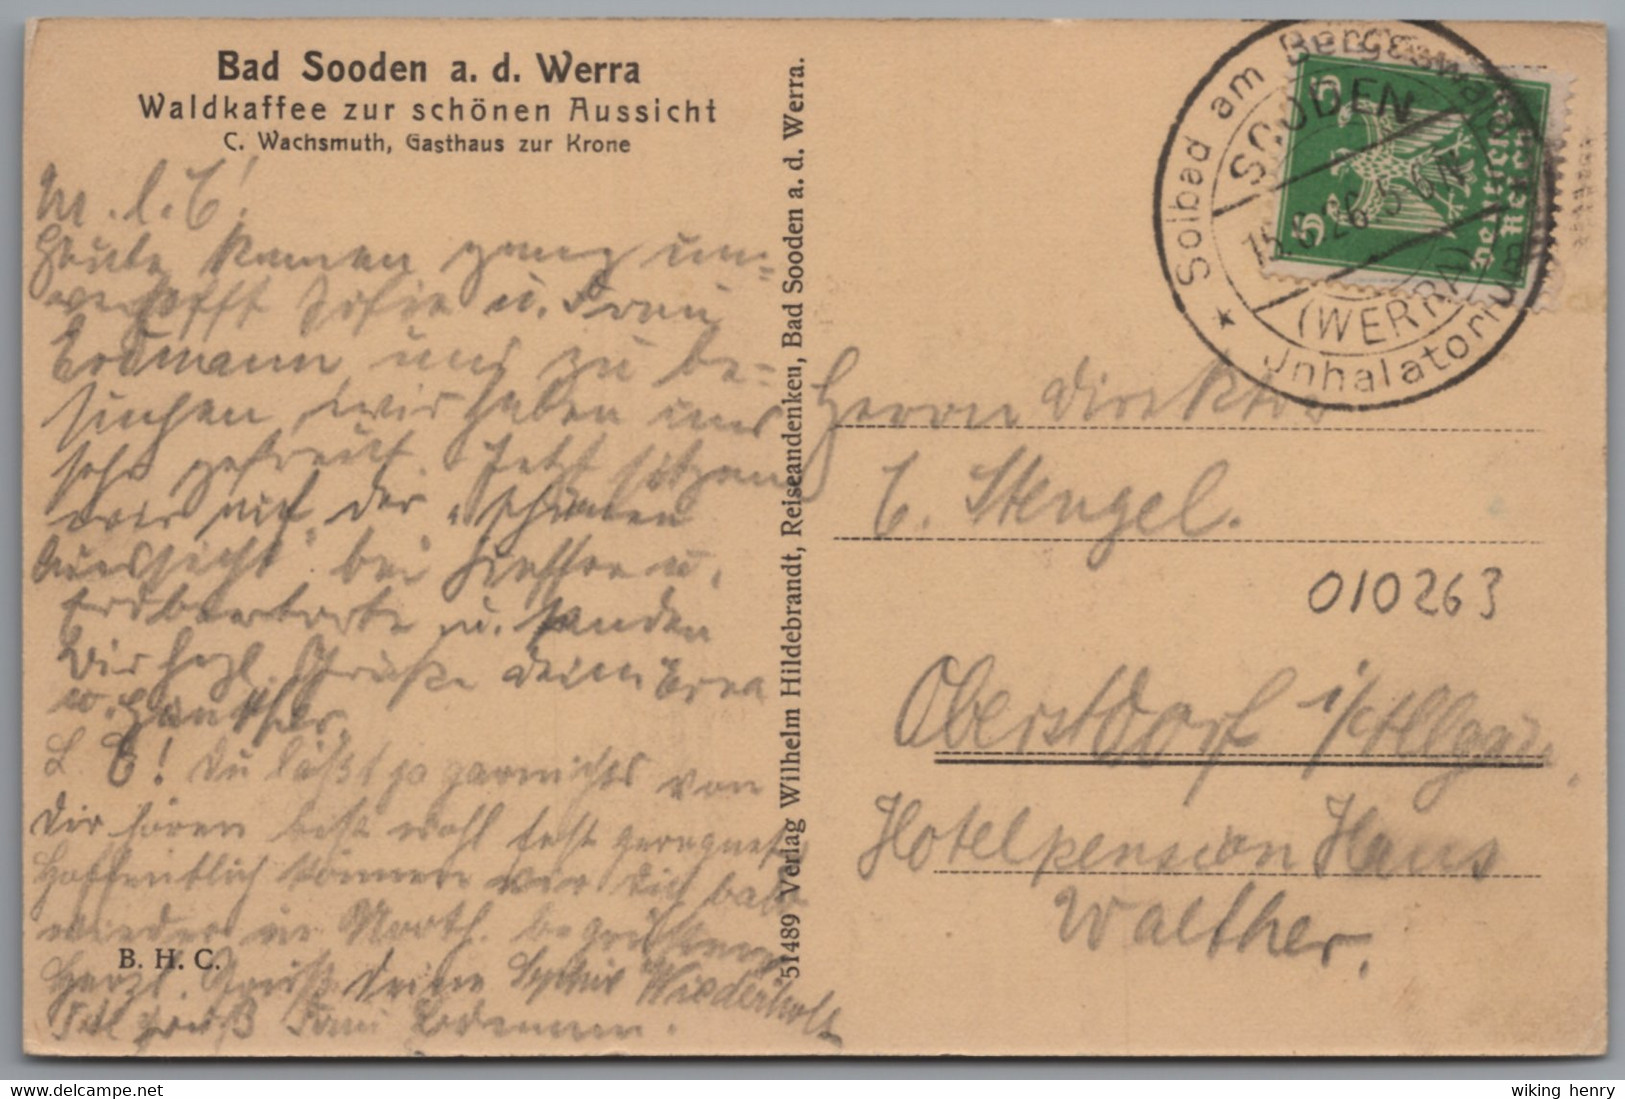 Bad Sooden a. d. Werra
Waldkaffee zur schönen Aussicht
C. Wachsmuth, Gasthaus zur Krone
M. l. E!
Heute kamen ganz un=
verhofft Sofie u. Frau
Erdmann uns zu be=
suchen, wir haben uns
sehr gefreut. Jetzt sitzen
wir auf der "schönen
Aussicht" bei Kaffee u.
Erdbeertorte u. senden
Dir herzl. Grüße Deine Erna
u. Günther.
L E! Du läßt ja garnichts von
Dir hören bist wohl fest geregnet,
Hoffentlich können wir Dich bald
wieder in North. begrüßen
Herzl. Gruß Deine Sophie Wiederholt
Gruß Frau Erdmann.
B. H. C.
51489 Verlag Wilhelm Hildebrandt, Reiseandenken, Bad Sooden a. d. Werra.
Solbad am
SOODEN
15.6.26. 5-6 N
(WERRA)
★ Jnhalatorium
5
5
Deutsches Reich
Herrn Direktor
E. Stengel.
010263
Oberstdorf i/Allgäu.
Hotelpension Haus
Walther.
delcampe.net
wiking henry